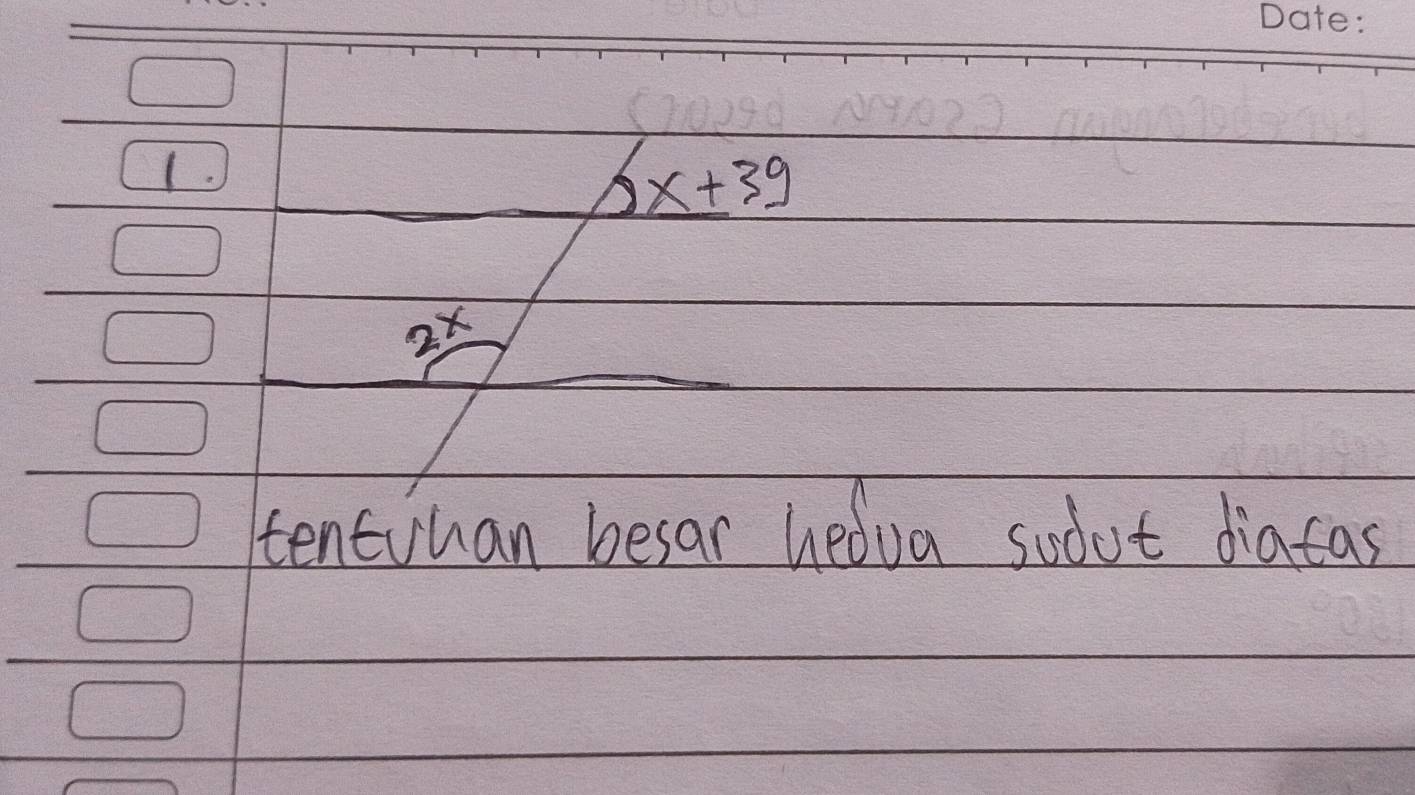 Date:
1.
x+39
2x
tentukan besar kedua sudut diatas